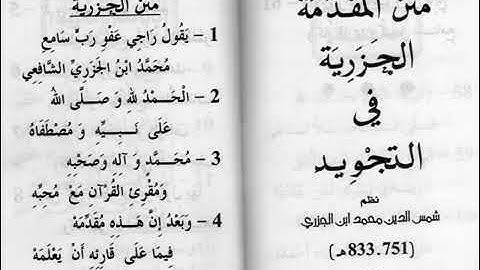 متن المقدمة
الجزرية
في
التجويد
نظم
شمس الدين محمد ابن الجزري
(833.751هـ)
متن الجزرية
1 - يَقُولُ رَاجِي عَفْوِ رَبٍّ سَامِعِ
مُحَمَّدُ ابْنُ الجَزَرِيِّ الشَّافِعِي
2 - الْحَمْدُ لله وَ صَلَّى اللهُ
عَلَى نَبِيِّهِ وَ مُصْطَفَاهُ
3 - مُحَمَّدٍ وَ آلِهِ وَصَحْبِهِ
وَمُقْرِئِ القُرْآنِ مَعْ مُحِبِّهِ
4 - وَبَعْدُ إِنَّ هَذِهِ مُقَدِّمَهْ
فِيمَا عَلَى قَارِئِهِ أَنْ يَعْلَمَهْ